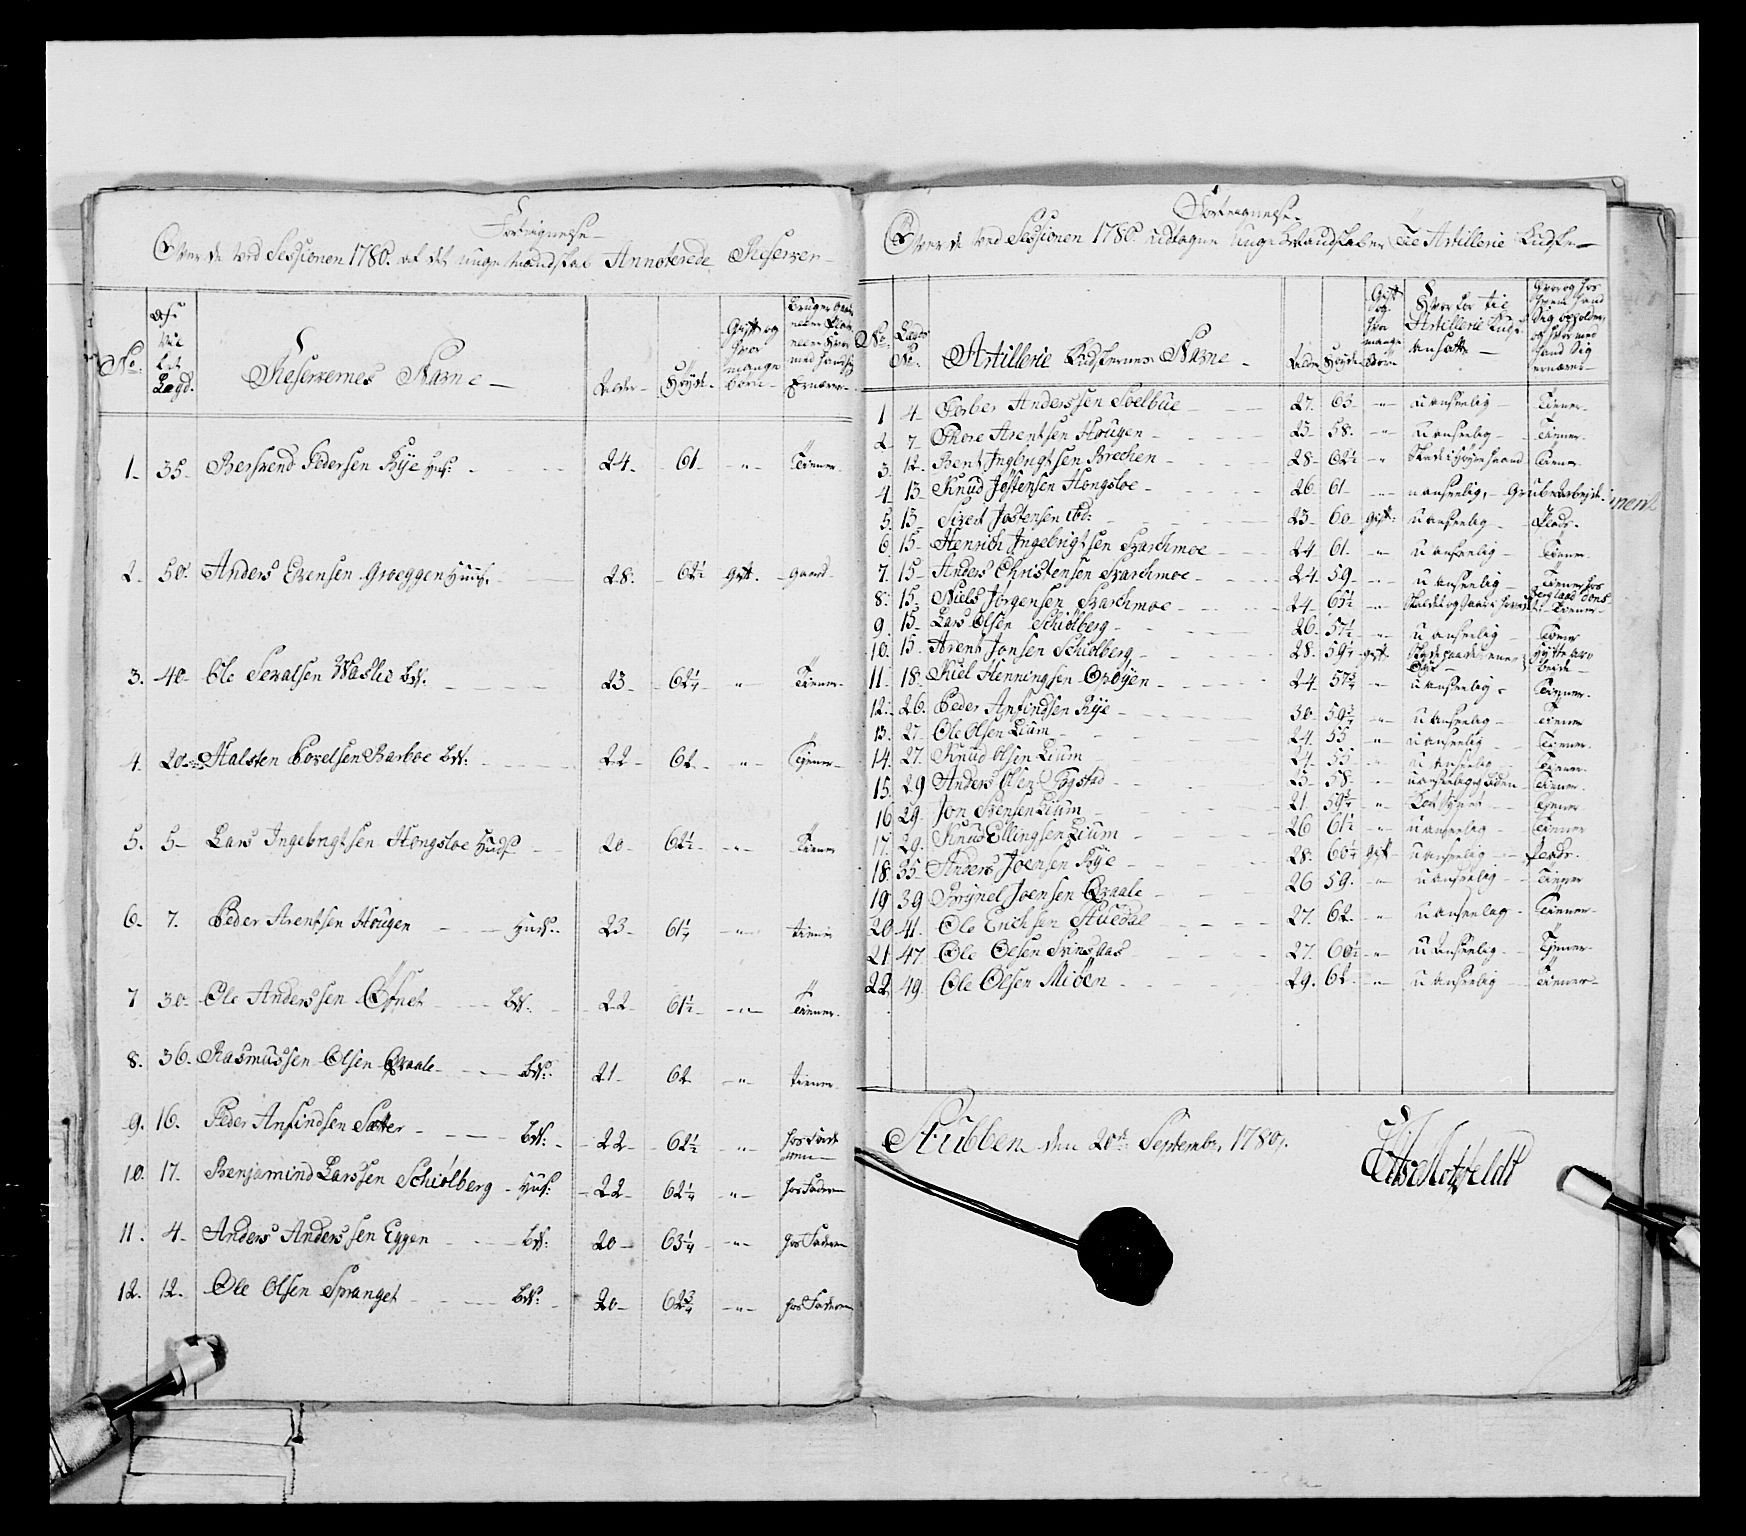 Fortegnelse
Over de ved Sessionen 1780. af det unge Mandskab Annoterede Reserver
No. Lægd. Reservernes Navne Alder Høyde Gift og hvor mange børn
1. 35. Bersvend Pedersen Rye Huus: 24. 61 " Tiener
2. 50. Anders Evensen Groeggen Huus. 28. 62½ Gift. gaard
3. 40. Ole Sivalsen Waslie Bd: 23 62¼ " Tiener
4. 20. Halsten Povelsen Barboe Bd: 22 62 " Tiener
5. 5 Lars Ingebrigtsen Hongsloe Huus 20 62½ " Tiener
6. 7. Peder Arentsen Hougen Huus: 23 61¼ " tiener
7 30. Ole Anderssen Ofset Bd: 22 61½ " Tiener
8. 36. Rasmussen Olsen Qvaale Bd: 21 62 " tiener
9. 16. Peder Anfindsen Sæter Bd: 22 62½ " hos Faderen
10. 17. Benjamind Larssen Schiølberg Huus: 22 62¼ " hos Faderen
11. 4 Anders Anderssen Eggen Bd: 20 63¼ " hos Faderen
12. 12. Ole Olsen Spranget Bd: 20 62¾ " hos Faderen
Fortegnelse
Over de ved Sessionen 1780. udtagne unge Mandskaber til Artillerie Kudske
No. Lægds No. Artillerie Kudskernes Navne Alder Høyde Gift og hvor mange Børn Hvorfor til Artillerie Kudsk ansatt
1 4 Peder Anderssen Soelbue 27. 63 " uanseelig Tiener
2 7 Thore Arentsen Hougen 23 58. " uanseelig Tiener
3. 12 Bent Ingebrigtsen Brechen 28 62½ " Skade i høyre haand Tiener
4. 13 Knud Jostensen Hongsloe 26 61 " uanseelig, Grube Arbejde
5. 13 Sivert Jostensen ibd: 23 60 Gift: uanseelig Pladz.
6 15 Henrich Ingebrigtsen Svarchmoe 24 61. " uanseelig Tiener
7. 15 Anders Christensen Svarchmoe 24. 59 " uanseelig Tiener hos
8. 15. Niels Jørgensen Svarchmoe 24 65½ " Tiener
9 15 Lars Olsen Schiølberg 26 57½ " uanseelig Tiener
10. 15. Arent Jonsen Schiølberg 28. 59¼ gift Hytte Arbeide
11. 18. Kiel Henningsen Grøyen 24 57¾ " uanseelig Tiener
12. 26. Peder Anfindsen Rye 30 59¾ " uanseelig Tiener
13. 27. Ole Olsen Lium 24. 55 " uanseelig Tiener
14. 27. Knud Olsen Lium 24 55 " uanseelig Tiener
15. 29 Anders Olsen Bogstad 23 58. " uanseelig Tiener
16 29. Jon Svensen Lium 21 59¾ " Tiener
17. 29. Knud Ellingsen Lium 26 61½ " uanseelig Tiener
18. 35. Anders Joensen Rye 28. 60¼ Gift uanseelig Pladz.
19 39 Brynel Joensen Qvaale 26 59. " uanseelig Tiener
20 41. Ole Erichsen Stuedal 27. 62. " uanseelig Tiener
21 47. Ole Olsen Svinsaas 27. 60½ " uanseelig Tiener
22. 49. Ole Olsen Miöen 29. 62 " uanseelig Tiener
Stubben den 20de September 1780.